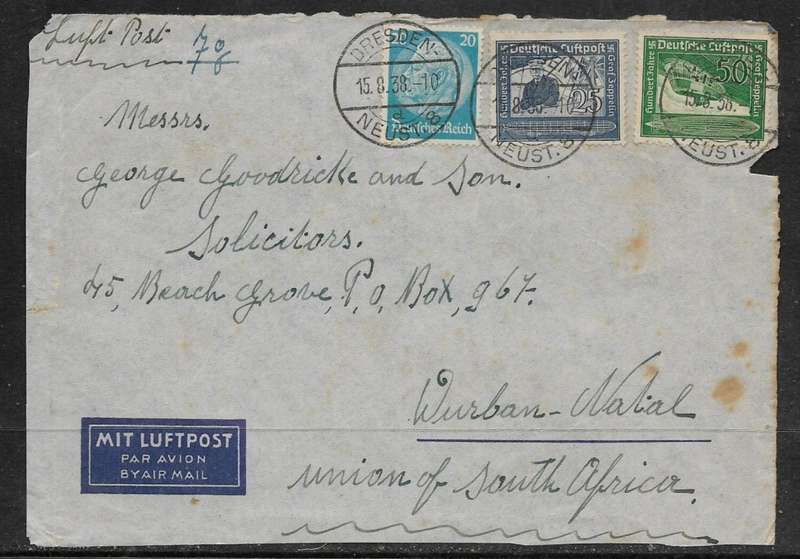 Luft Post
78
20
Deutsches Reich
DRESDEN-
15.8.38.-10
NEUST.
Deutsche Luftpost
Hundert Jahre
Graf Zeppelin
25
NEUST. 6
Deutsche Luftpost
Hundert Jahre
Graf Zeppelin
50
15.8.38.
NEUST. 6
Messrs.
George Goodricke and Son.
Solicitors.
45, Beach Grove, P.O. Box, 967.
Durban-Natal
union of South Africa.
MIT LUFTPOST
PAR AVION
BY AIR MAIL